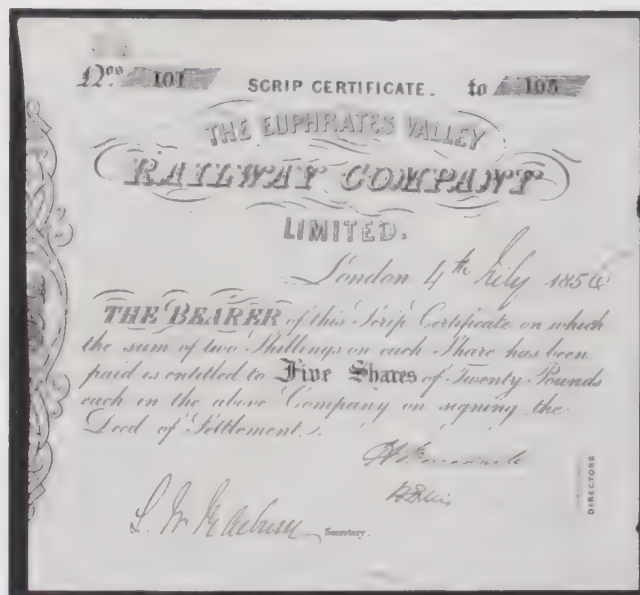 Nos. 101 SCRIP CERTIFICATE. to 105
THE EUPHRATES VALLEY
RAILWAY COMPANY
LIMITED.
London 4th July 1856
THE BEARER of this Scrip Certificate on which
the sum of two Shillings on each Share has been
paid is entitled to Five Shares of Twenty Pounds
each in the above Company on signing the
Deed of Settlement.
DIRECTORS
Secretary.